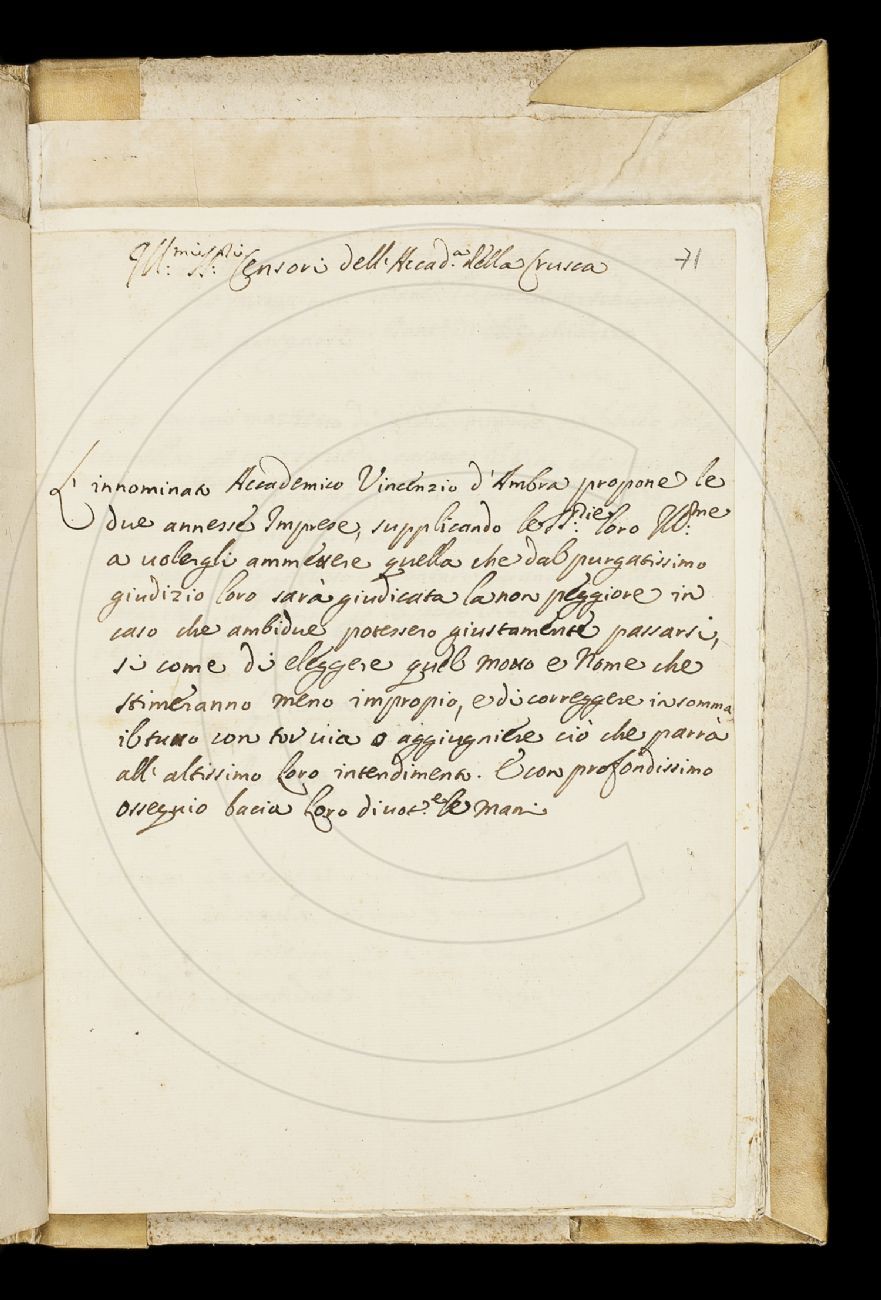 Ill:mi SS:ri Censori dell'Accad:a della Crusca 71
L'innominato Accademico Vincenzio d'Ambra propone le
due annesse Imprese, supplicando le loro Ill:me
a volergli ammettere quella che dal purgatissimo
giudizio loro sarà giudicata la non peggiore in
caso che ambidue potessero giustamente passarsi,
sì come di eleggere quel Motto e Nome che
stimeranno meno impropio, e di correggere in somma
il tutto con tor via o aggiugniere ciò che parrà
all'altissimo loro intendimento. E con profondissimo
ossequio bacia loro divot:e le mani